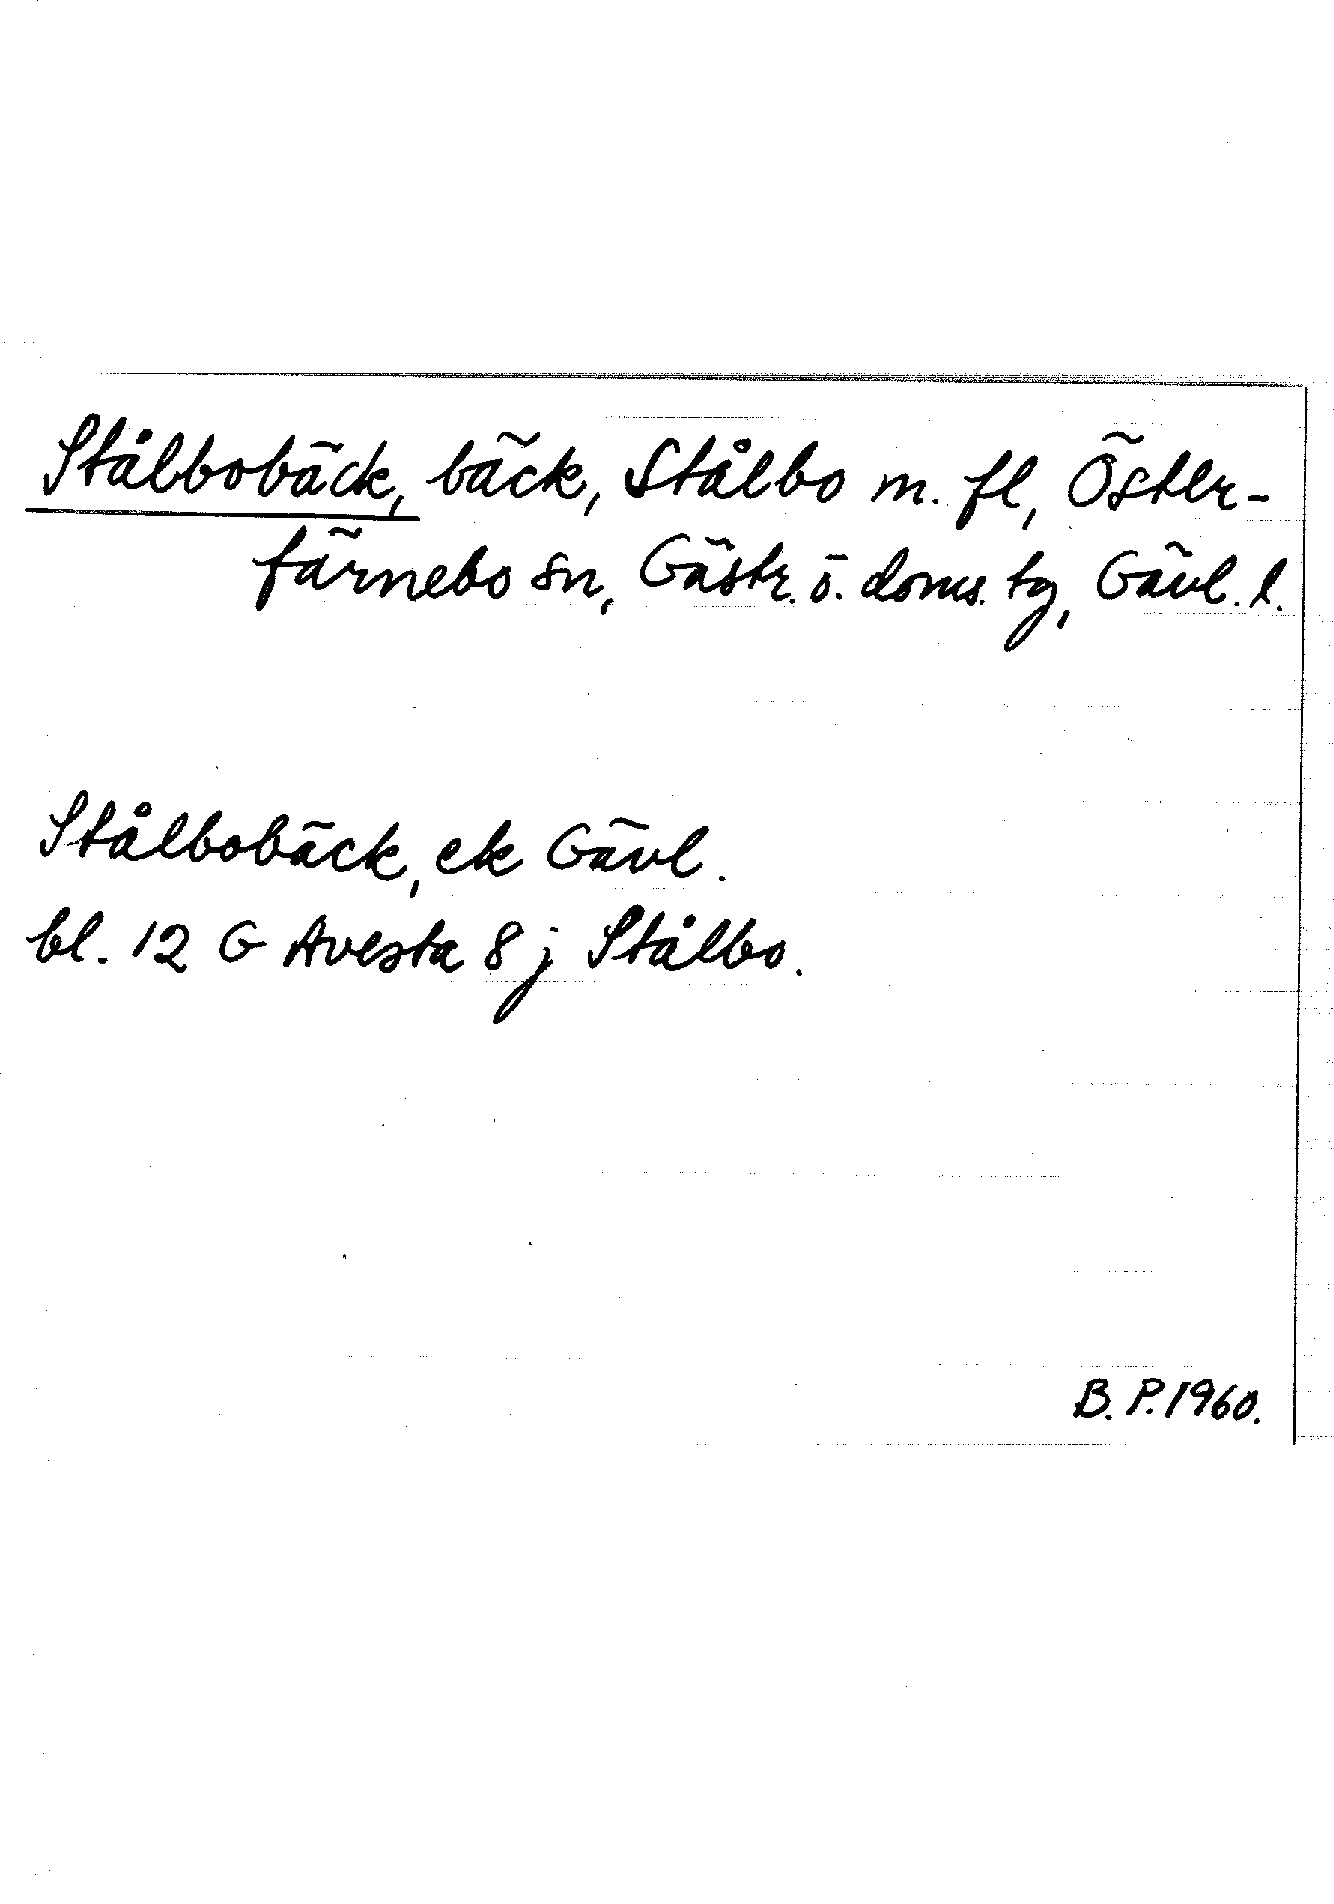 Stålbobäck, bäck, Stålbo m. fl, Öster-
färnebo sn, Gästr. ö. doms. tg, Gävl. l.
Stålbobäck, ek Gävl.
bl. 12 G Avesta 8 j Stålbo.
B. P. 1960.